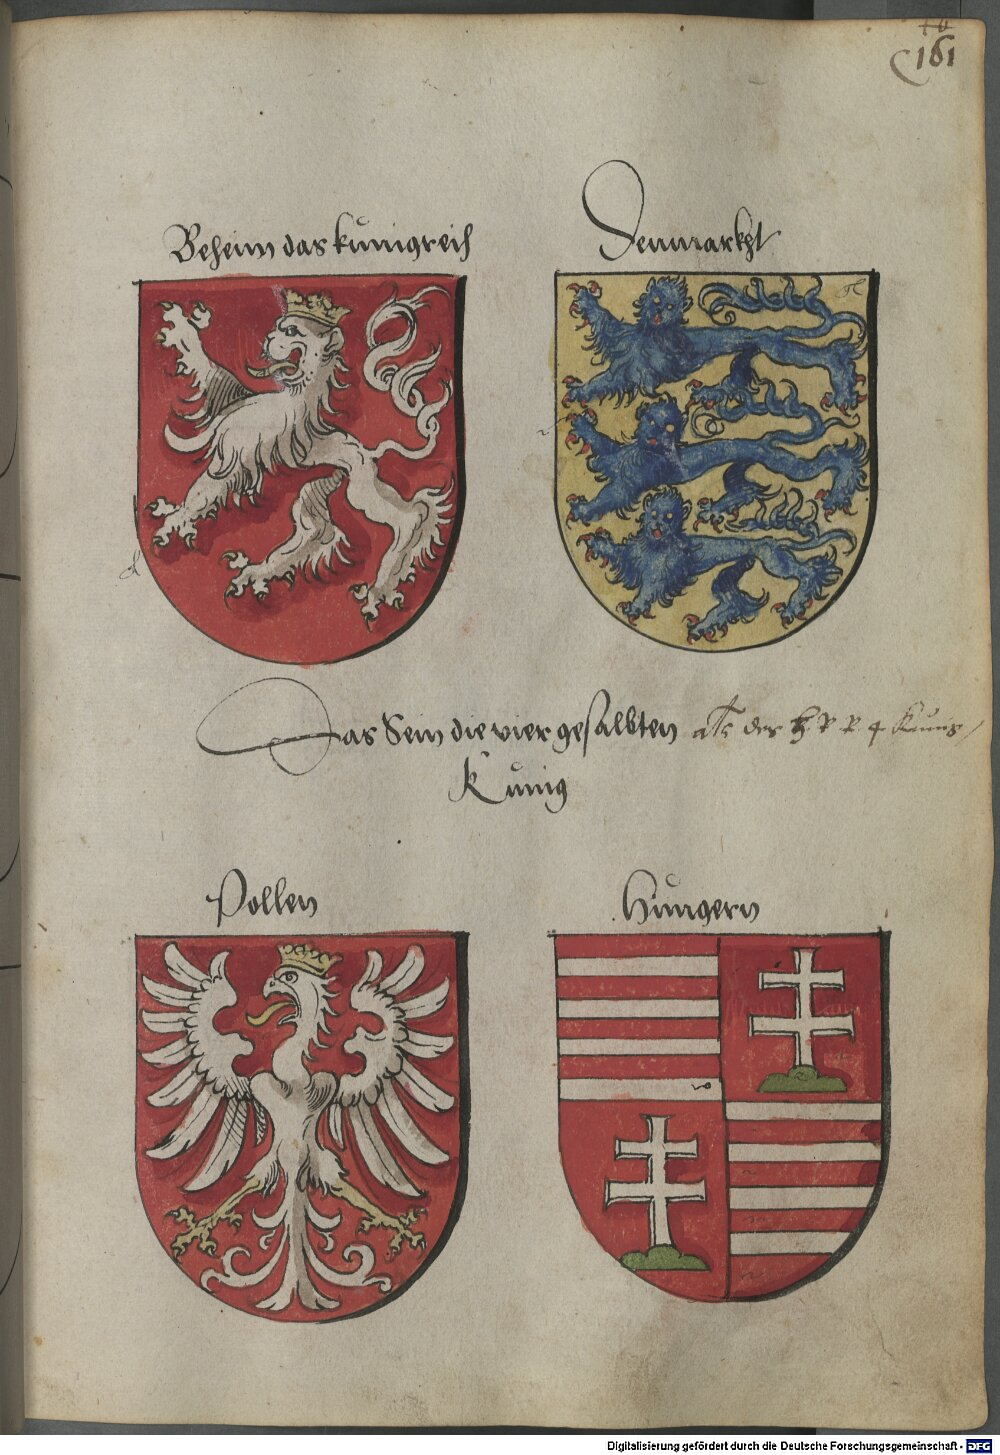 161
Beheim das kunigreich
Denmarkht
Das Sein die vier gesalbten
Kunig
Pollen
Hungern
Digitalisierung gefördert durch die Deutsche Forschungsgemeinschaft - DFG